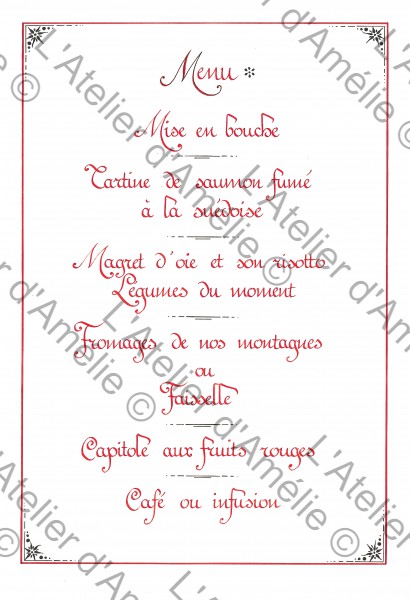 Menu *
Mise en bouche
Tartine de saumon fumé
à la suédoise
Magret d'oie et son risotto
Légumes du moment
Fromages de nos montagnes
ou
Faisselle
Capitole aux fruits rouges
Café ou infusion
L'Atelier d'Amélie ©
L'Atelier d'Amélie ©
L'Atelier d'Amélie ©
L'Atelier d'Amélie ©
L'Atelier d'Amélie ©